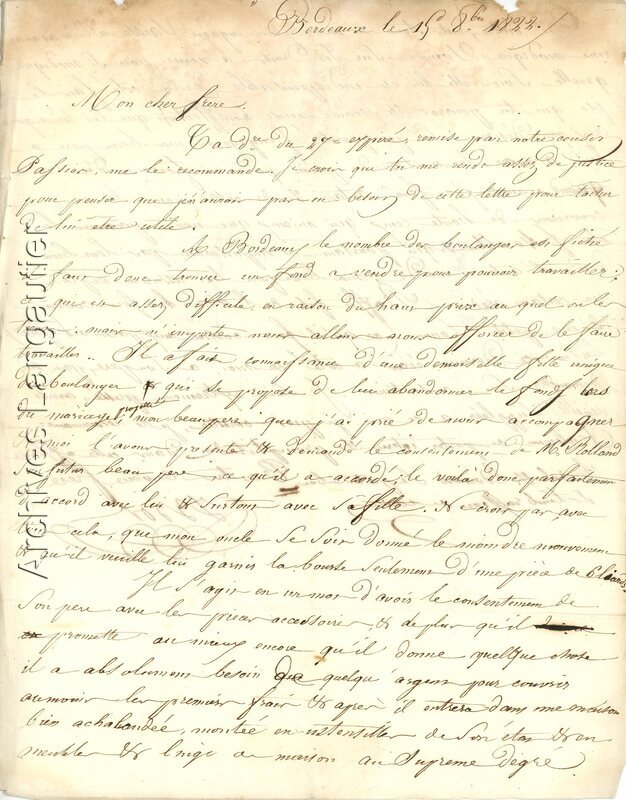 Bordeaux le 15 8bre 1822.
Mon cher frere.
Ta dre du 27 expiré, remise par notre cousin
Passier, me le recommande. Je crois que tu me rends assez de justice
pour penser que je n'aurois pas eu besoin de cette lettre pour tacher
de lui être utile.
A Bordeaux le nombre des boulangers est fixé
faut donc trouver un fond a vendre pour pouvoir travailler;
qui est assez difficile, en raison du haut prix au quel on les
mais n'importe nous allons nous efforcer de le faire
travailler. Il a fait connaissance d'une demoiselle fille unique
de boulanger & qui se propose de lui abandonner le fond lors
du mariage projetté, mon beaupere que j'ai prié de nous accompagner
& moi l'avons presenté & demandé le consentement de M. Rolland
futur beau pere, ce qu'il a accordé; le voilà donc parfaitement
d'accord avec lui & surtout avec sa fille. Ne crois pas avec
tout cela, que mon oncle se soit donné le moindre mouvement
& qu'il veuille lui garnir la bourse seulement d'une pièce de 6 liards
Il s'agit en un mot d'avoir le consentement de
son pere avec les pieces accessoires, & de plus qu'il
promette au mieux encore qu'il donne quelque chose
il a absolument besoin de quelqu argent pour couvrir
aumoins les premiers frais & après il entrera dans une maison
bien achalandée, montée en ustensilles de son état & en
meubles & linge de maison au Supreme degré
Archives Lengautier